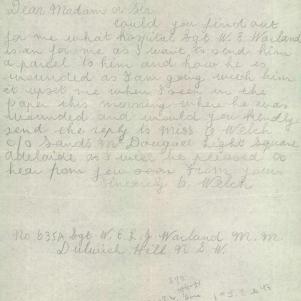 Dear Madam or Sir
could you find out
for me what hospital Sgt W. E. Warland
is an for me as I want to send him
a parcel to him and how he is
wounded as I am going with him
it upset me when I seen in the
paper this morning where he was
wounded and would you kindly
send the reply to Miss O Welch
c/o Sands McDougal Light Square
Adelaide as I will be pleased to
hear from you soon from yours
Sincerely O. Welch
No 635A Sgt W. E. L. J Warland M. M.
Dulwich Hill N S W